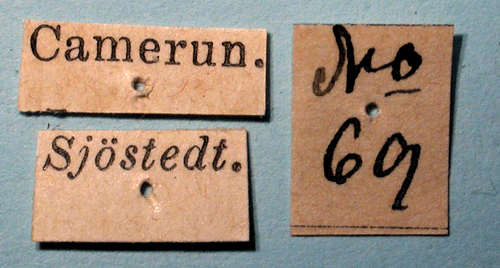 Camerun.
Sjöstedt.
No
69